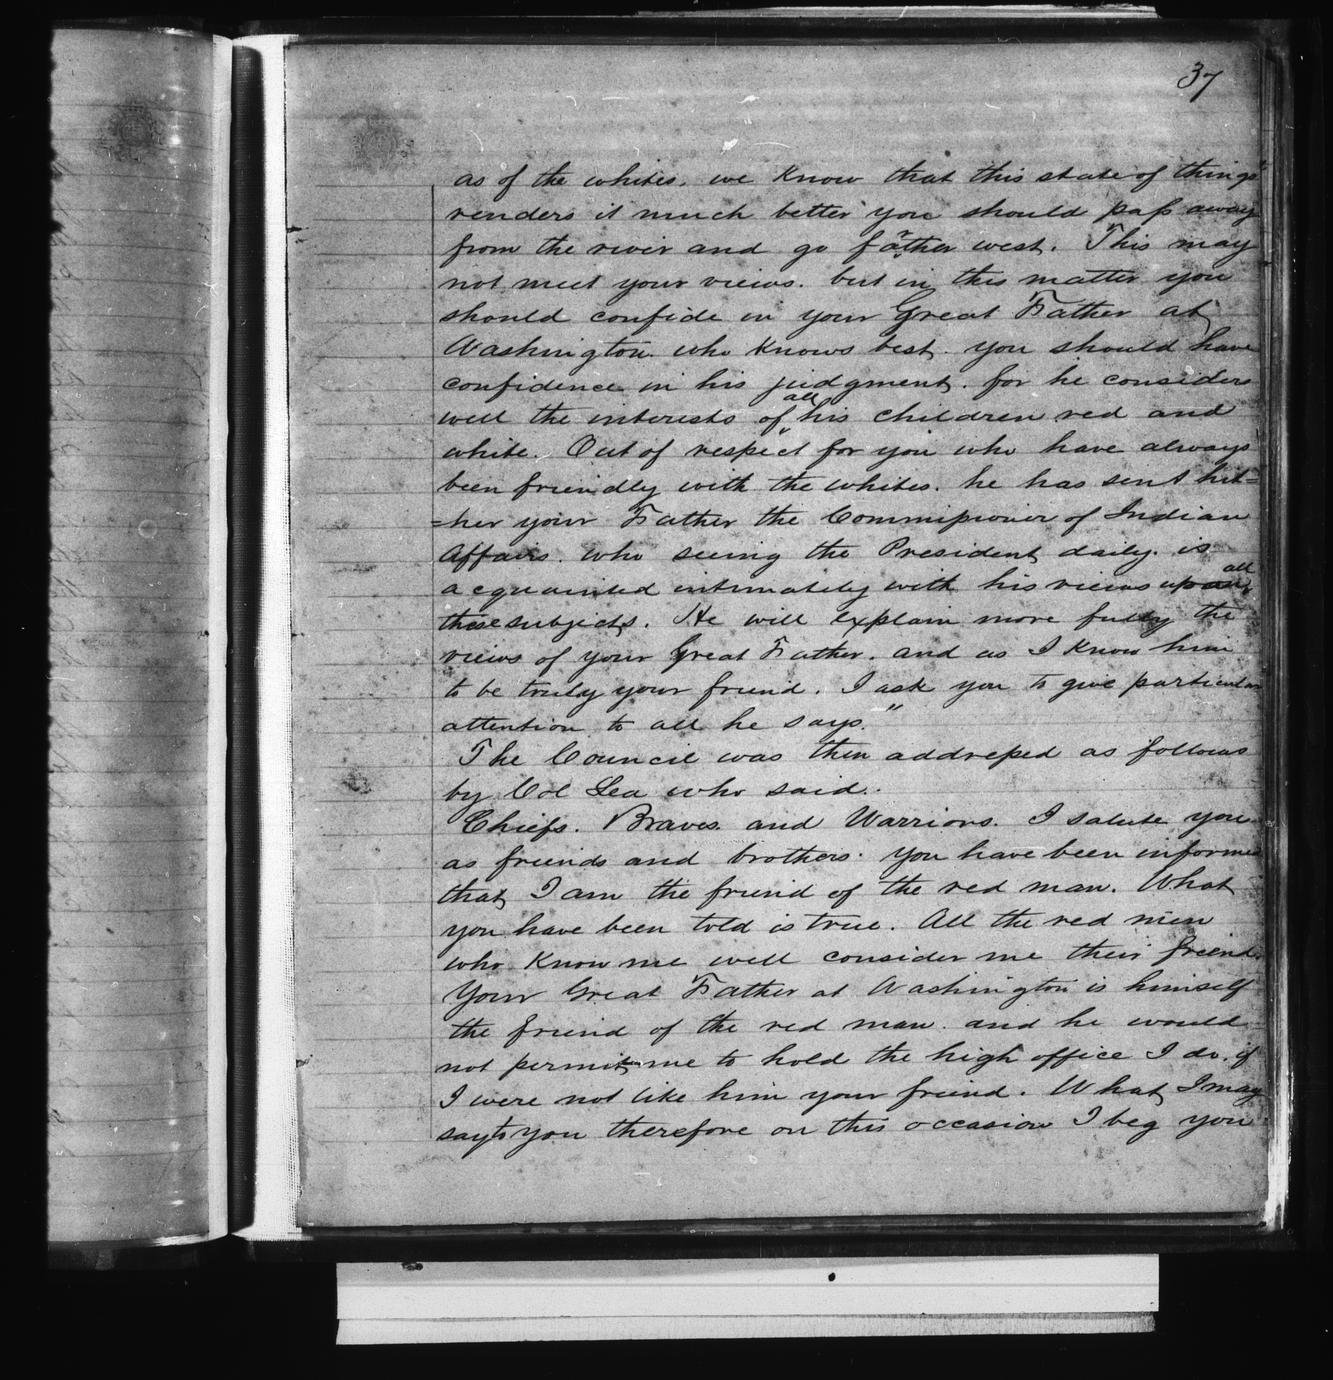 37
as of the whites. we know that this state of things
renders it much better you should pass away
from the river and go farther west. This may
not meet your views. but in this matter you
should confide in your Great Father at
Washington. who knows best. you should have
confidence in his judgment. for he considers
well the interests of all his children red and
white. Out of respect for you who have always
been friendly with the whites. he has sent hit=
=her your Father the Commissioner of Indian
Affairs. who seeing the President daily. is
acquainted intimately with his views upon all
these subjects. He will explain more fully the
views of your Great Father. and as I know him
to be truly your friend. I ask you to give particular
attention to all he says."
The Council was then addressed as follows
by Col Lea who said.
Chiefs. Braves. and Warriors. I salute you
as friends and brothers. you have been informed
that I am the friend of the red man. What
you have been told is true. All the red men
who know me well consider me their friend.
Your Great Father at Washington is himself
the friend of the red man. and he would
not permit me to hold the high office I do. if
I were not like him your friend. What I may
say to you therefore on this occasion I beg you